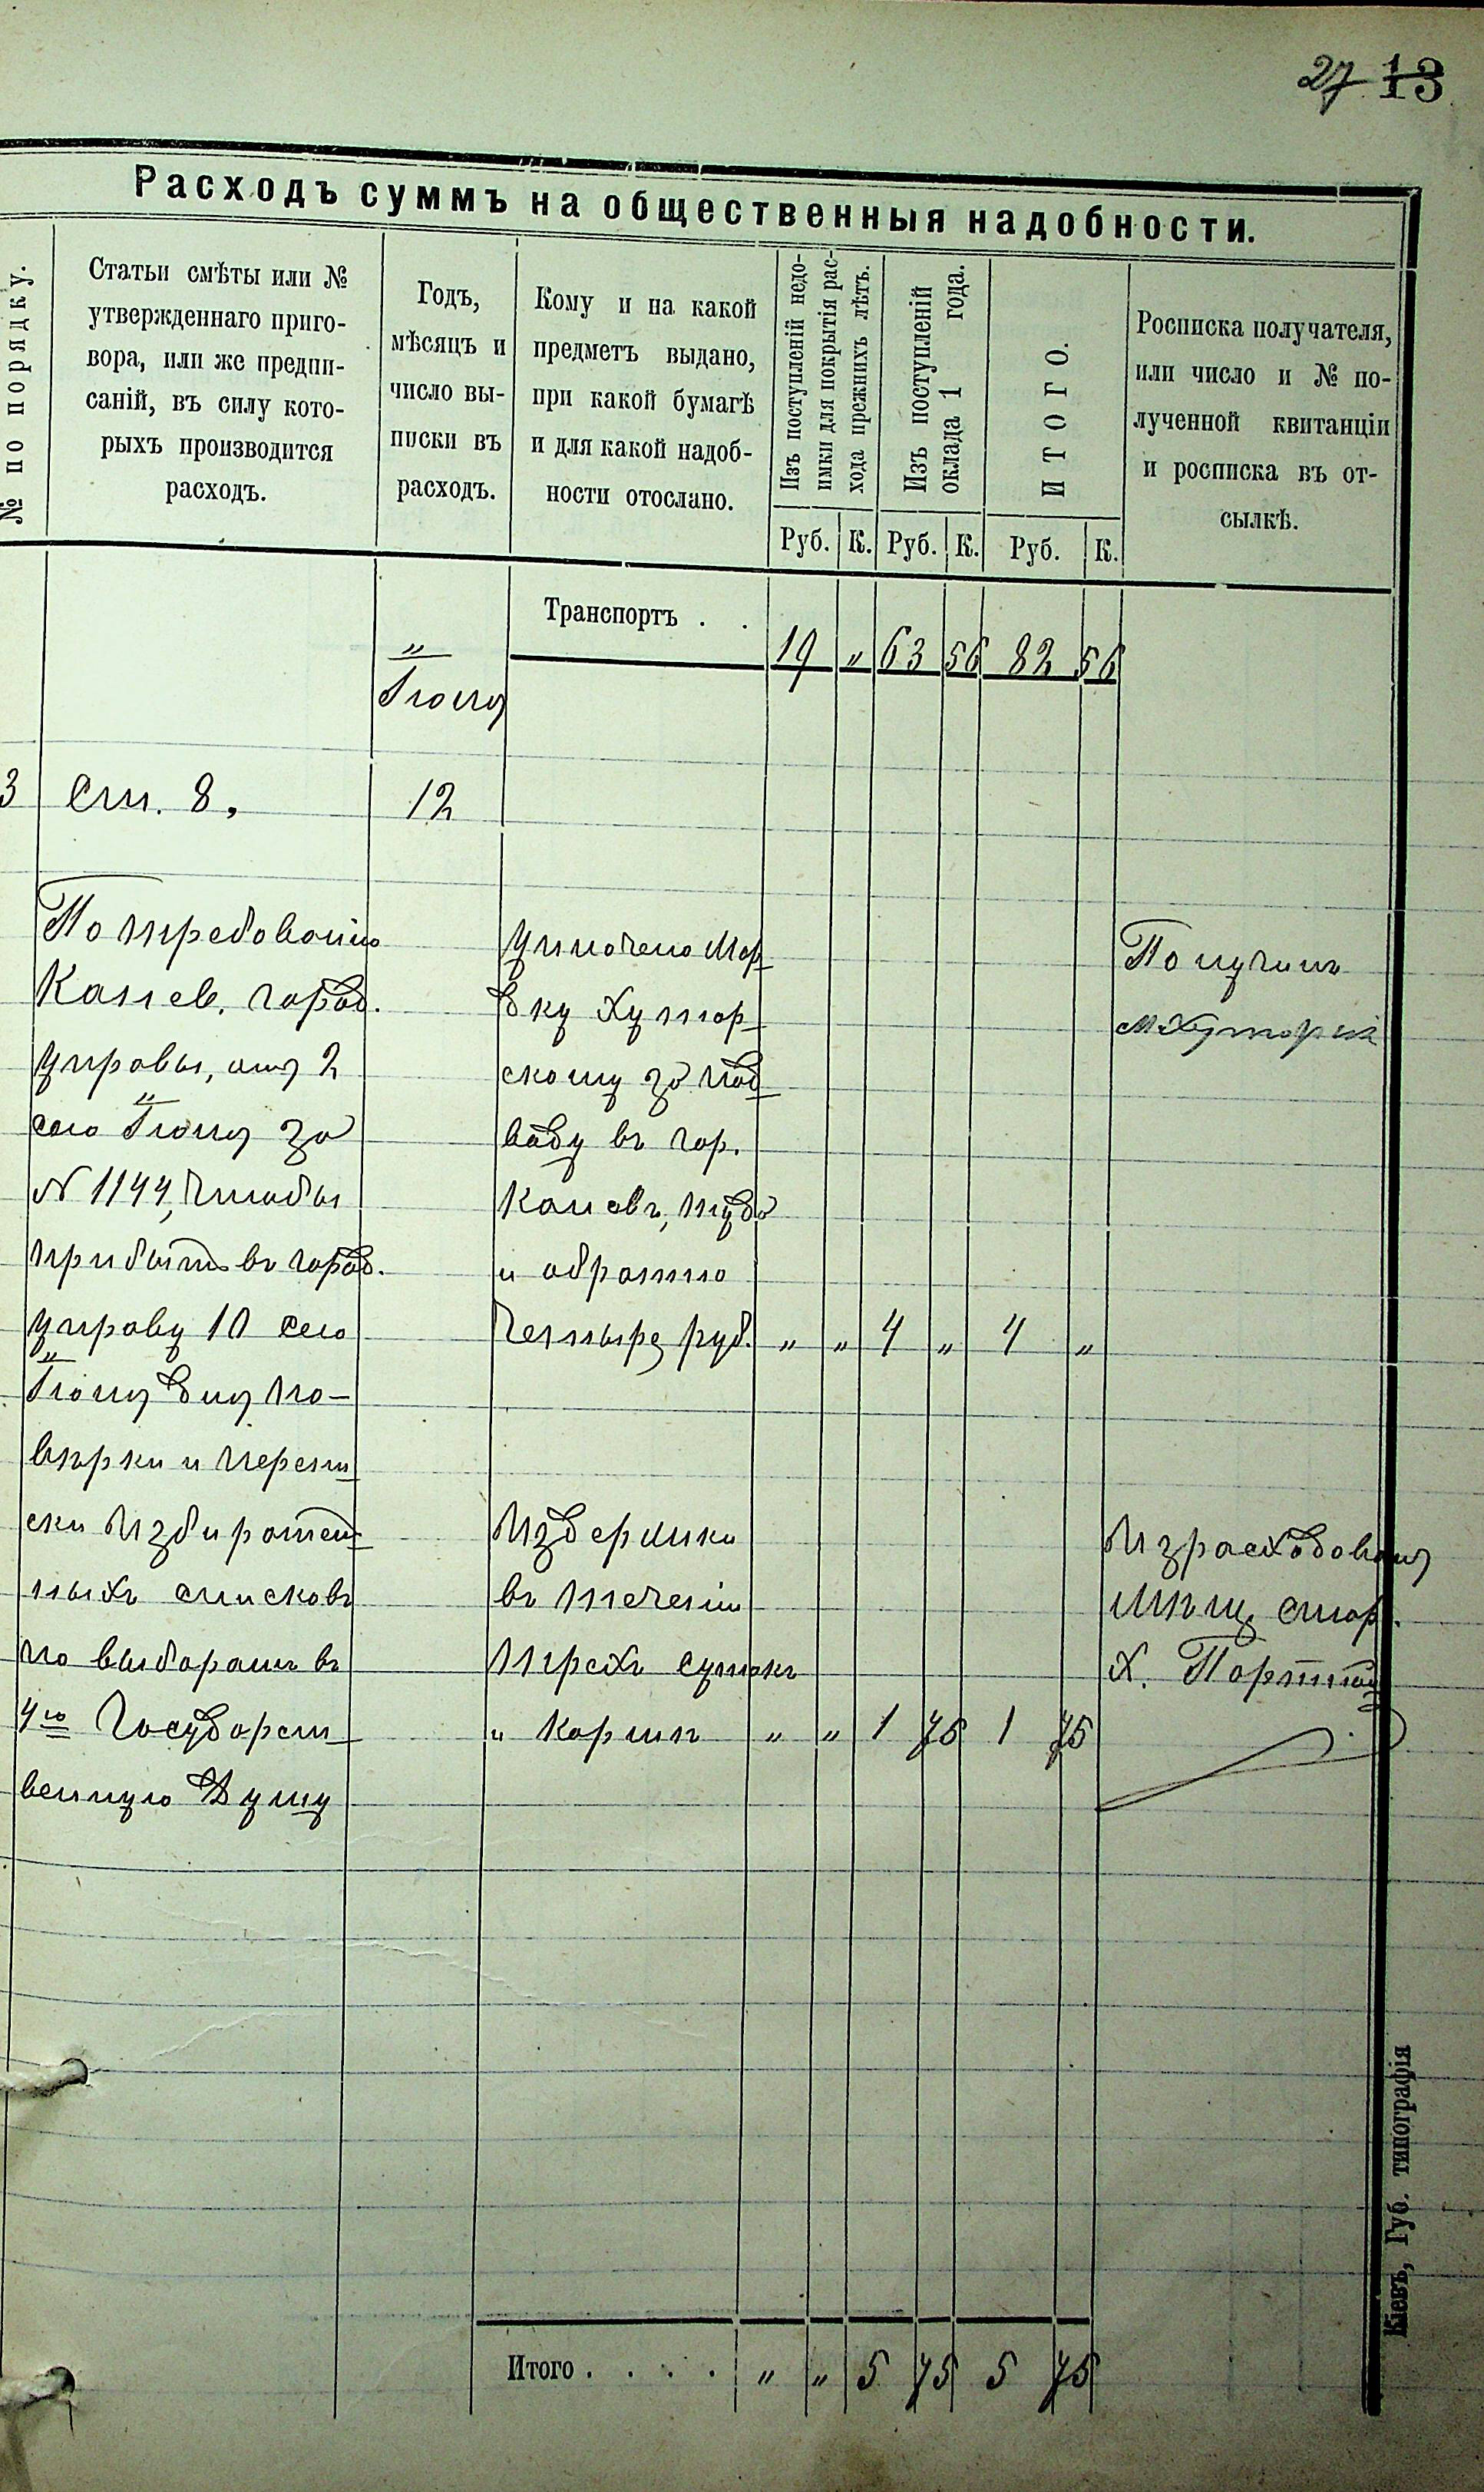 27 13
Расходъ суммъ на общественныя надобности.
№ по порядку.
Статьи смѣты или №
утвержденнаго приго-
вора, или же предпи-
саній, въ силу кото-
рыхъ производится
расходъ.
Годъ,
мѣсяцъ и
число вы-
писки въ
расходъ.
Кому и на какой
предметъ выдано,
при какой бумагѣ
и для какой надоб-
ности отослано.
Изъ поступленій недо-
имки для покрытія рас-
хода прежнихъ лѣтъ.
Изъ поступленій
оклада 1 года.
ИТОГО.
Росписка получателя,
или число и № по-
лученной квитанціи
и росписка въ от-
сылкѣ.
Руб. К. Руб. К. Руб. К.
Транспортъ . . 19 „ 63 56 82 56
Іюля
3 Ст. 8, 12
По требованію
Канев. город.
управы, отъ 2
сего Іюля за
№ 1144, чтобы
прибыть въ город.
управу 10 сего
Іюля для по-
вѣрки и перепи
ски Избиратель
ныхъ списковъ
по выборамъ въ
4ю Государст
венную Думу
уплочено Мор
дку Хутор
скому за под
воду въ гор.
Каневъ, туда
и обратно
четыре руб. „ „ 4 „ 4 „
Издержки
въ теченіи
трехъ сутокъ
и кормъ „ „ 1 75 1 75
Получилъ
М Хуторскій
Израсходовалъ
Мѣщ. стар.
Х. Портной
Итого . . . . „ „ 5 75 5 75
Кіевъ, Губ. типографія